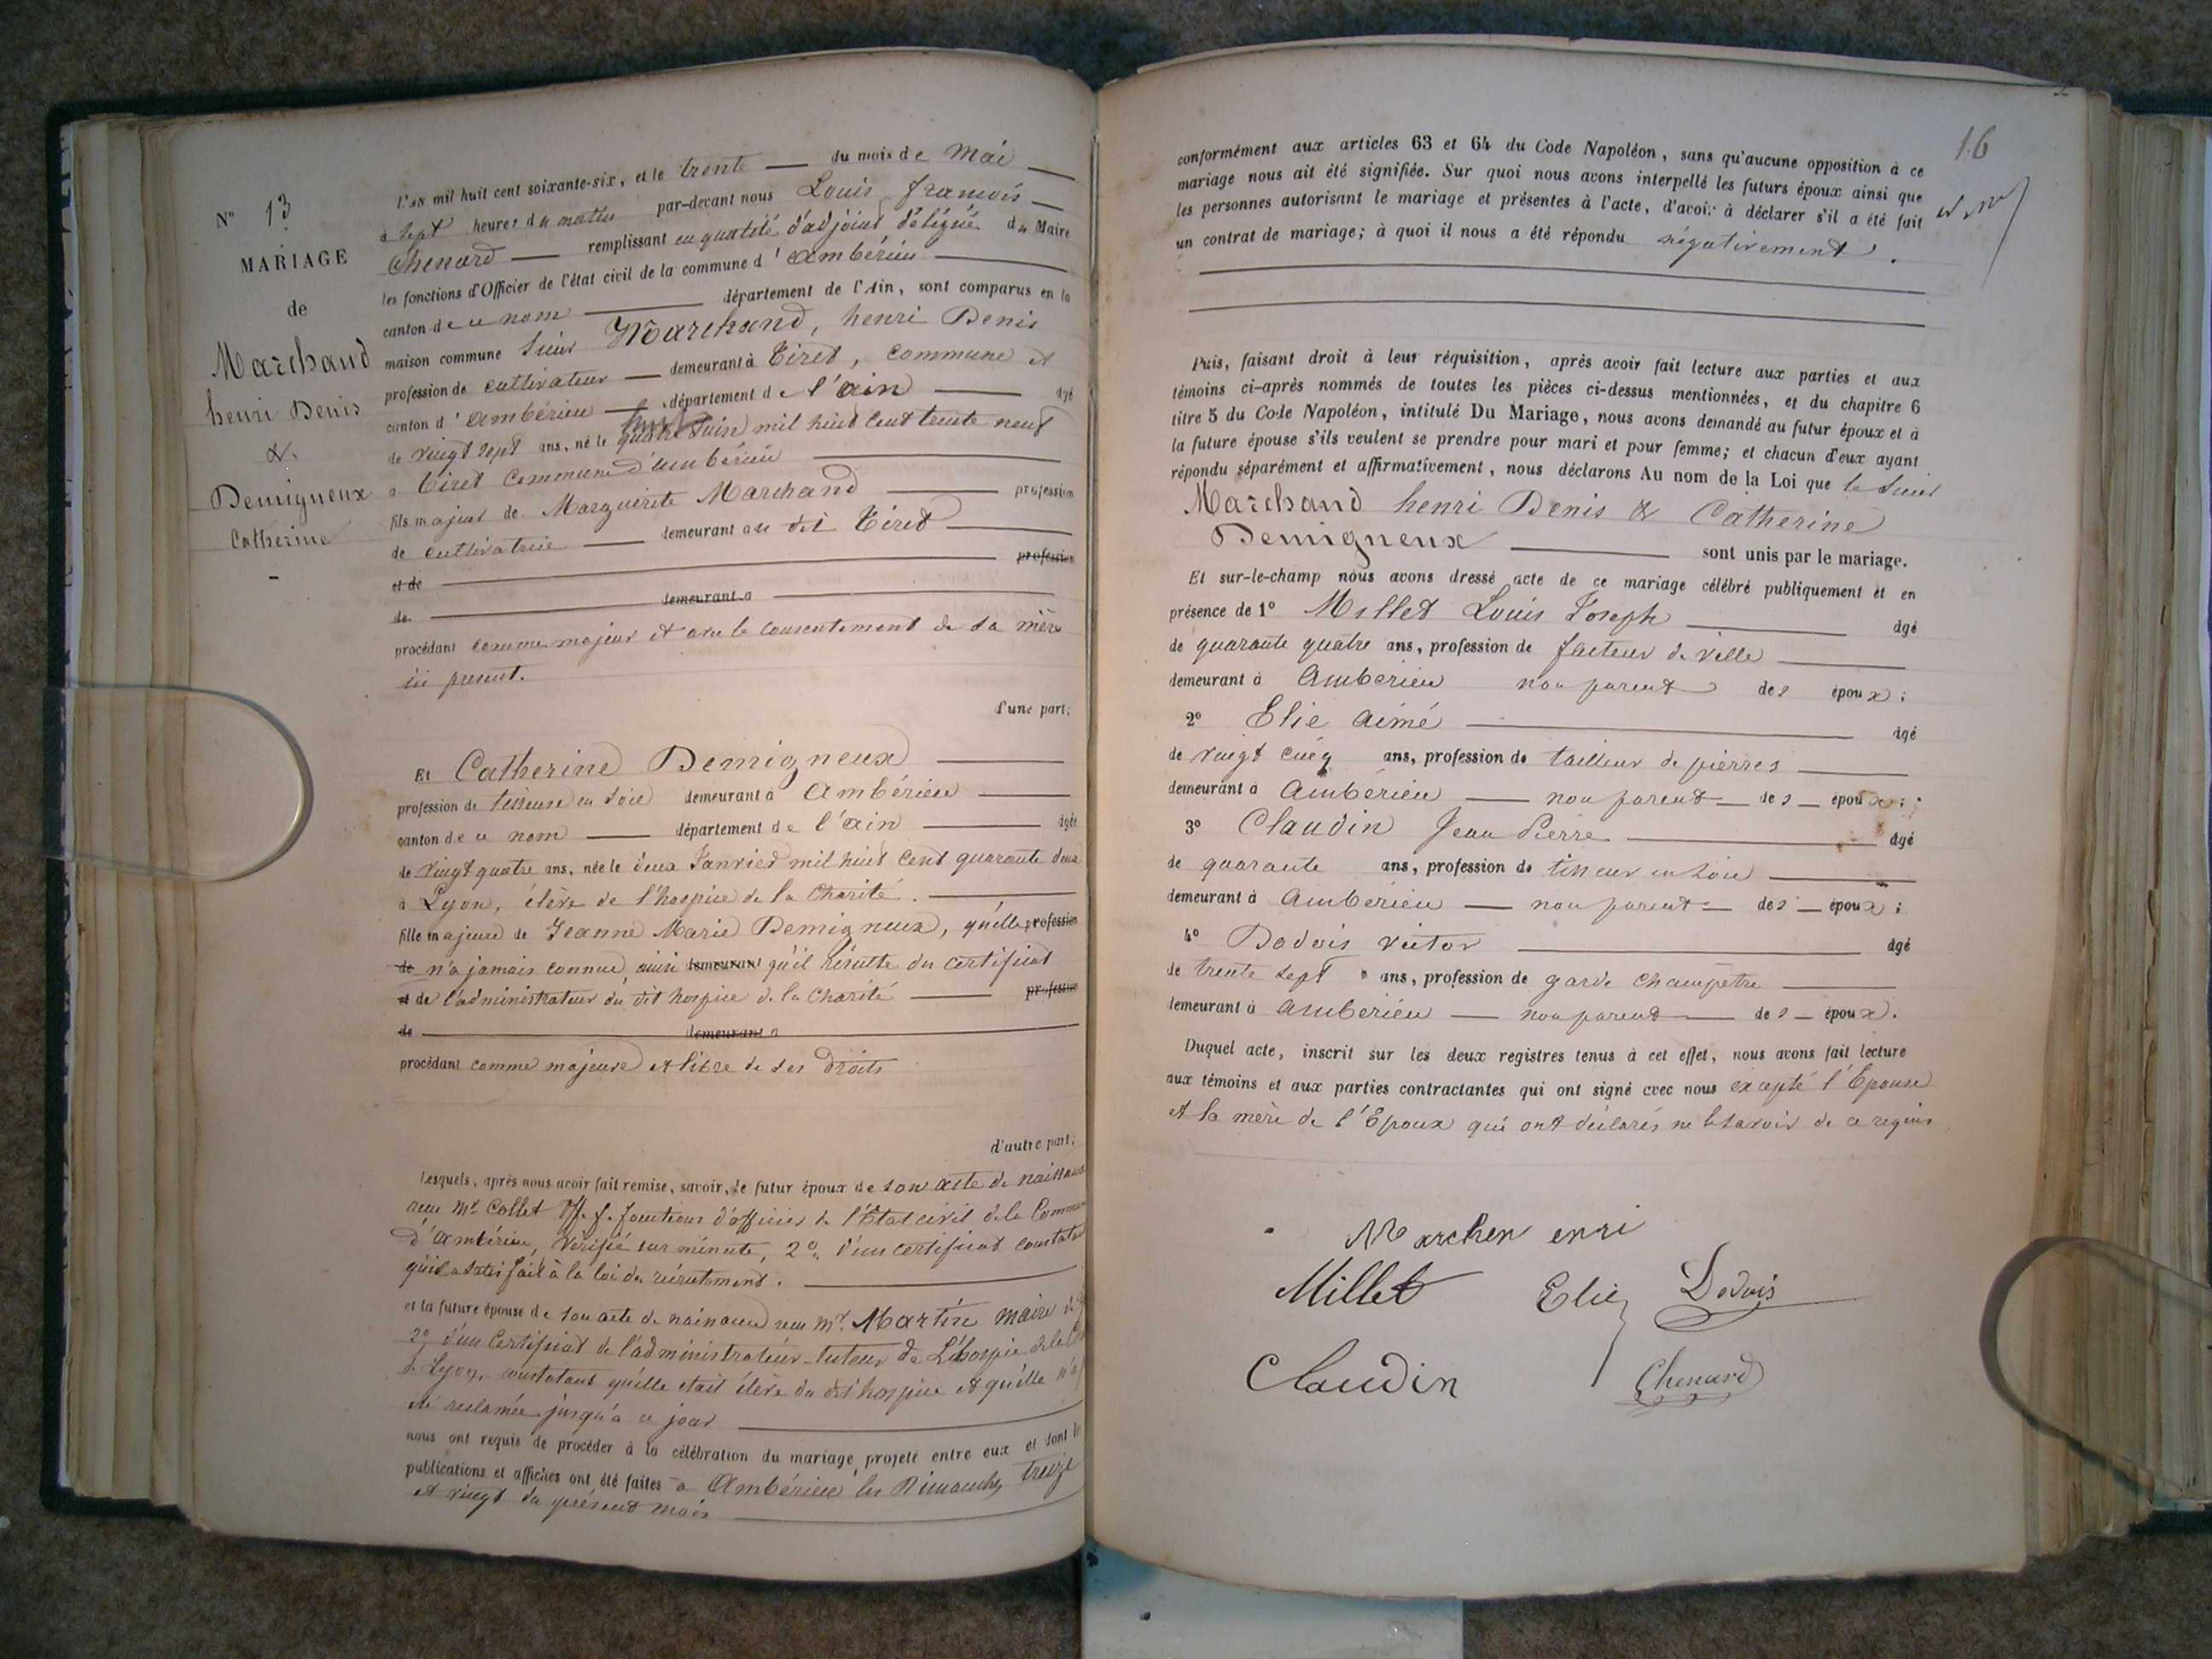 N° 13
MARIAGE
de
Marchand
henri Denis
&.
Demigneux
Catherine
L'AN mil huit cent soixante-six, et le trente du mois de Mai
à Sept heures du matin par-devant nous Louis françois
Chenard remplissant en qualité d'adjoint délégué du Maire
les fonctions d'Officier de l'état civil de la commune d'Ambérieu
canton de ce nom département de l'Ain, sont comparus en la
maison commune Sieur Marchand, henri Denis
profession de cultivateur demeurant à Tiret, commune et
canton d'Ambérieu département de l'ain âgé
de vingt sept ans, né le quatre Juin mil huit cent trente neuf
à Tiret Commune d'ambérieu
fils majeur de Marguerite Marchand profession
de cultivatrice demeurant au dit Tiret
et de profession
de demeurant à
procédant comme majeur et avec le consentement de sa mère
ici present.
d'une part;
Et Catherine Demigneux
profession de tisseuse en soie demeurant à Ambérieu
canton de ce nom département de l'ain âgée
de vingt quatre ans, née le deux Janvier mil huit cent quarante deux
à Lyon, élève de l'hospice de la Charité.
fille majeure de Jeanne Marie Demigneux, qu'elle profession
de n'a jamais connue, ainsi demeurant qu'il résulte du certificat
et de l'administrateur du dit hospice de la Charité profession
de demeurant à
procédant comme majeure et libre de ses droits
d'autre part;
Lesquels, après nous avoir fait remise, savoir, le futur époux de son acte de naissance
reçu Mr Collet ff. f. fonctions d'officier de l'État civil de la Commune
d'Ambérieu, Vérifié sur minute, 2° d'un certificat constatant
qu'il a satisfait à la loi du recrutement.
et la future épouse de son acte de naissance reçu Mr. Martin Maire
2°, d'un Certificat de l'administrateur-tuteur de L'hospice de la
de Lyon, constatant qu'elle était élève du dit hospice et qu'elle n'a
été reclamée jusqu'à ce jour
nous ont requis de procéder à la célébration du mariage projeté entre eux et dont les
publications et affiches ont été faites à Ambérieu les Dimanches treize
et vingt du présent mois
16
conformément aux articles 63 et 64 du Code Napoléon, sans qu'aucune opposition à ce
mariage nous ait été signifiée. Sur quoi nous avons interpellé les futurs époux ainsi que
les personnes autorisant le mariage et présentes à l'acte, d'avoir à déclarer s'il a été fait
un contrat de mariage; à quoi il nous a été répondu négativement.
Puis, faisant droit à leur réquisition, après avoir fait lecture aux parties et aux
témoins ci-après nommés de toutes les pièces ci-dessus mentionnées, et du chapitre 6
titre 5 du Code Napoléon, intitulé Du Mariage, nous avons demandé au futur époux et à
la future épouse s'ils veulent se prendre pour mari et pour femme; et chacun d'eux ayant
répondu séparément et affirmativement, nous déclarons Au nom de la Loi que le Sieur
Marchand henri Denis & Catherine
Demigneux sont unis par le mariage.
Et sur-le-champ nous avons dressé acte de ce mariage célébré publiquement et en
présence de 1° Millet Louis Joseph âgé
de quarante quatre ans, profession de facteur de ville
demeurant à Ambérieu non parent des époux;
2° Elie aimé âgé
de vingt cinq ans, profession de tailleur de pierres
demeurant à Ambérieu non parent des époux;
3° Claudin Jean Pierre âgé
de quarante ans, profession de tisseur en soie
demeurant à Ambérieu non parent des époux;
4° Dodois victor âgé
de trente sept ans, profession de garde champêtre
demeurant à ambérieu non parent des époux.
Duquel acte, inscrit sur les deux registres tenus à cet effet, nous avons fait lecture
aux témoins et aux parties contractantes qui ont signé avec nous excepté l'Epouse
et la mère de l'Epoux qui ont déclarés ne le savoir de ce requis
Marchen enri
Millet Elie Dodois
Claudin Chenard